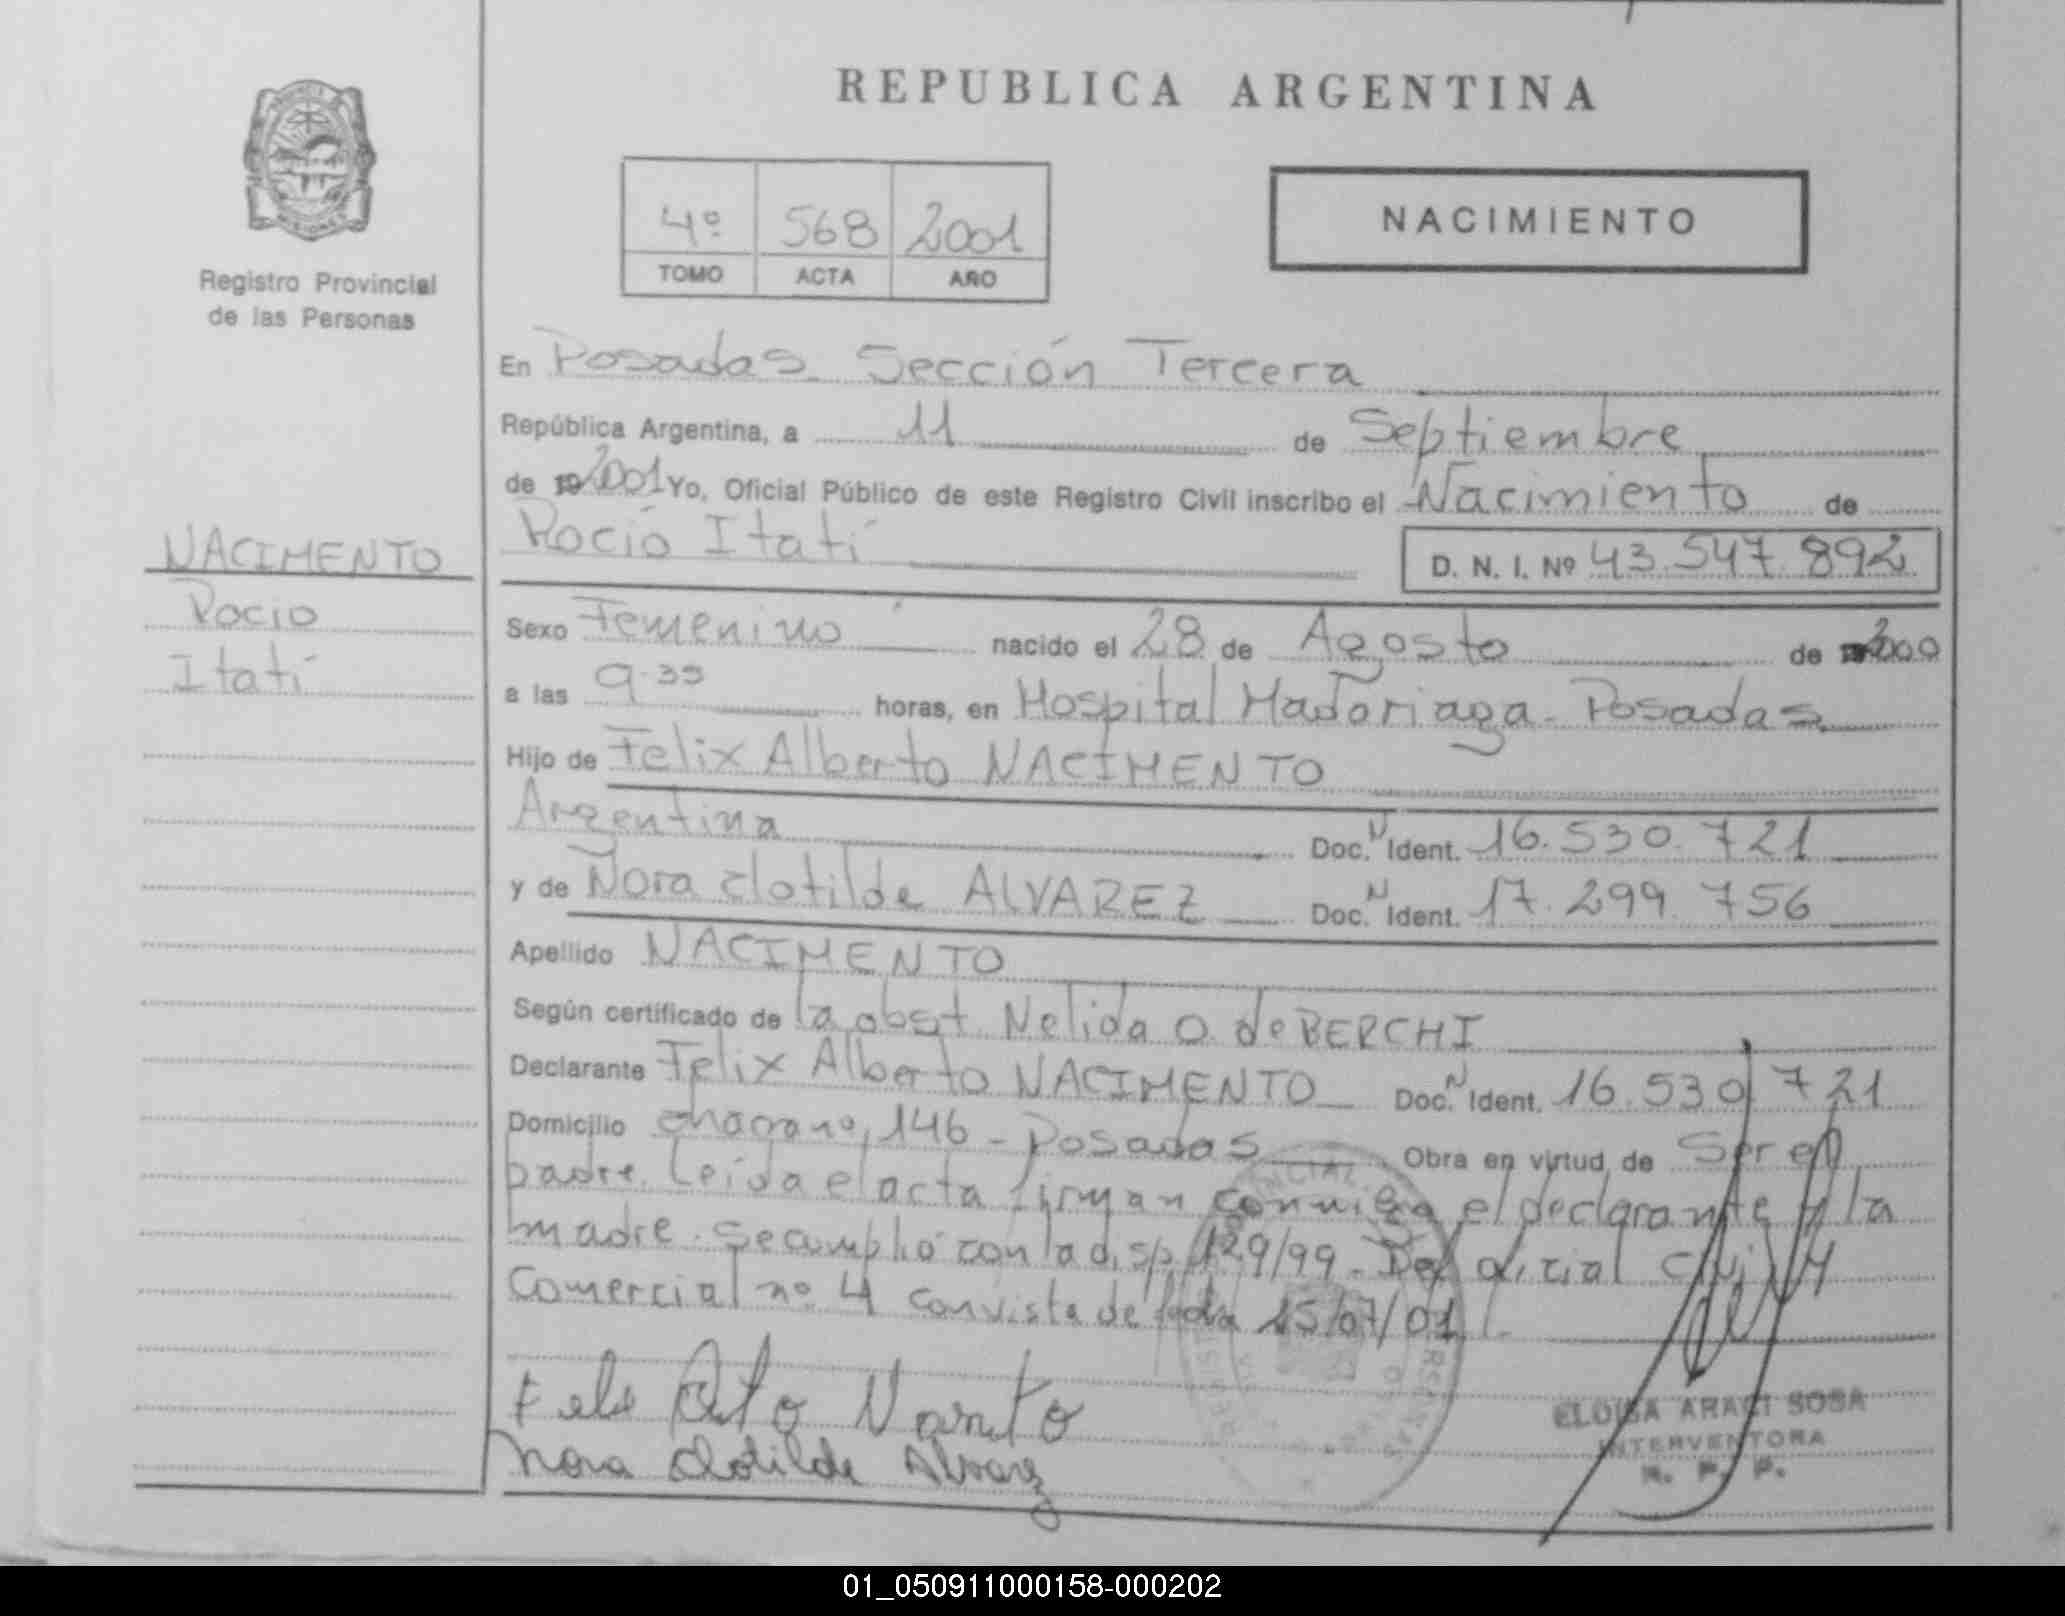 REPUBLICA ARGENTINA
Registro Provincial
de las Personas
4º 568 2001
TOMO ACTA AÑO
NACIMIENTO
En Posadas Sección Tercera
República Argentina, a 11 de Septiembre
de 2001 Yo, Oficial Público de este Registro Civil inscribo el Nacimiento de
Rocío Itatí
D. N. I. Nº 43.547.892
NACIMENTO
Rocio
Itatí
Sexo Femenino nacido el 28 de Agosto de 2000
a las 9.35 horas, en Hospital Madariaga - Posadas
Hijo de Felix Alberto NACIMENTO
Argentina Doc. N Ident. 16.530.721
y de Nora Clotilde ALVAREZ Doc. N Ident. 17.299.756
Apellido NACIMENTO
Según certificado de la obst. Nelida O. de BERCHI
Declarante Felix Alberto NACIMENTO Doc. N Ident. 16.530.721
Domicilio 146 - Posadas Obra en virtud de Ser el
padre. Leida el acta firman conmigo el declarante y la
madre. Se cumplió con la disp. 129/99. Def. oficial Civil y
Comercial nº 4 con vista de fecha 15/07/01
Nora Clotilde Alvarez
ELOISA ARACI SOSA
INTERVENTORA
R. P. P.
01_050911000158-000202